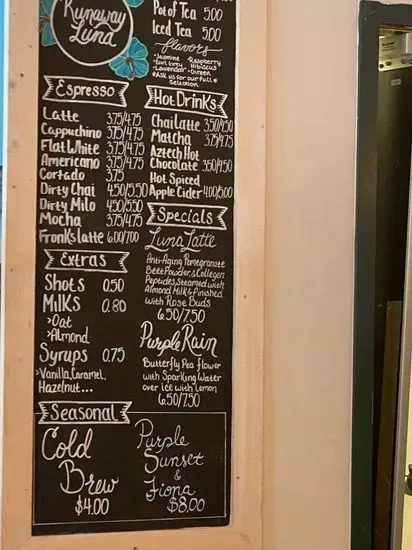 Runaway
Luna
Pot of Tea 5.00
Iced Tea 5.00
flavors
-Jasmine -Raspberry
-Earl Grey -Hibiscus
-Lavender -Green
*Ask us for our full
Selection
Espresso
Latte 3.75/4.75
Cappuchino 3.75/4.75
Flat White 3.75/4.75
Americano 3.75/4.75
Cortado 3.75
Dirty Chai 4.50/5.50
Dirty Milo 4.50/5.50
Mocha 3.75/4.75
Fronk's latte 6.00/7.00
Extras
Shots 0.50
Milks 0.80
>Oat
>Almond
Syrups 0.75
>Vanilla, Caramel,
Hazelnut...
Hot Drinks
Chai Latte 3.50/4.50
Matcha 3.75/4.75
Aztech Hot
Chocolate 3.50/4.50
Hot Spiced
Apple Cider 4.00/5.00
Specials
Luna Latte
Anti-Aging Pomegranate
Beet Powder & Collegen
Peptides, Steamed with
Almond Milk & Finished
with Rose Buds
6.50/7.50
Purple Rain
Butterfly Pea flower
with Sparking Water
over ice with Lemon
6.50/7.50
Seasonal
Cold
Brew
$4.00
Purple
Sunset
&
Fiona
$8.00